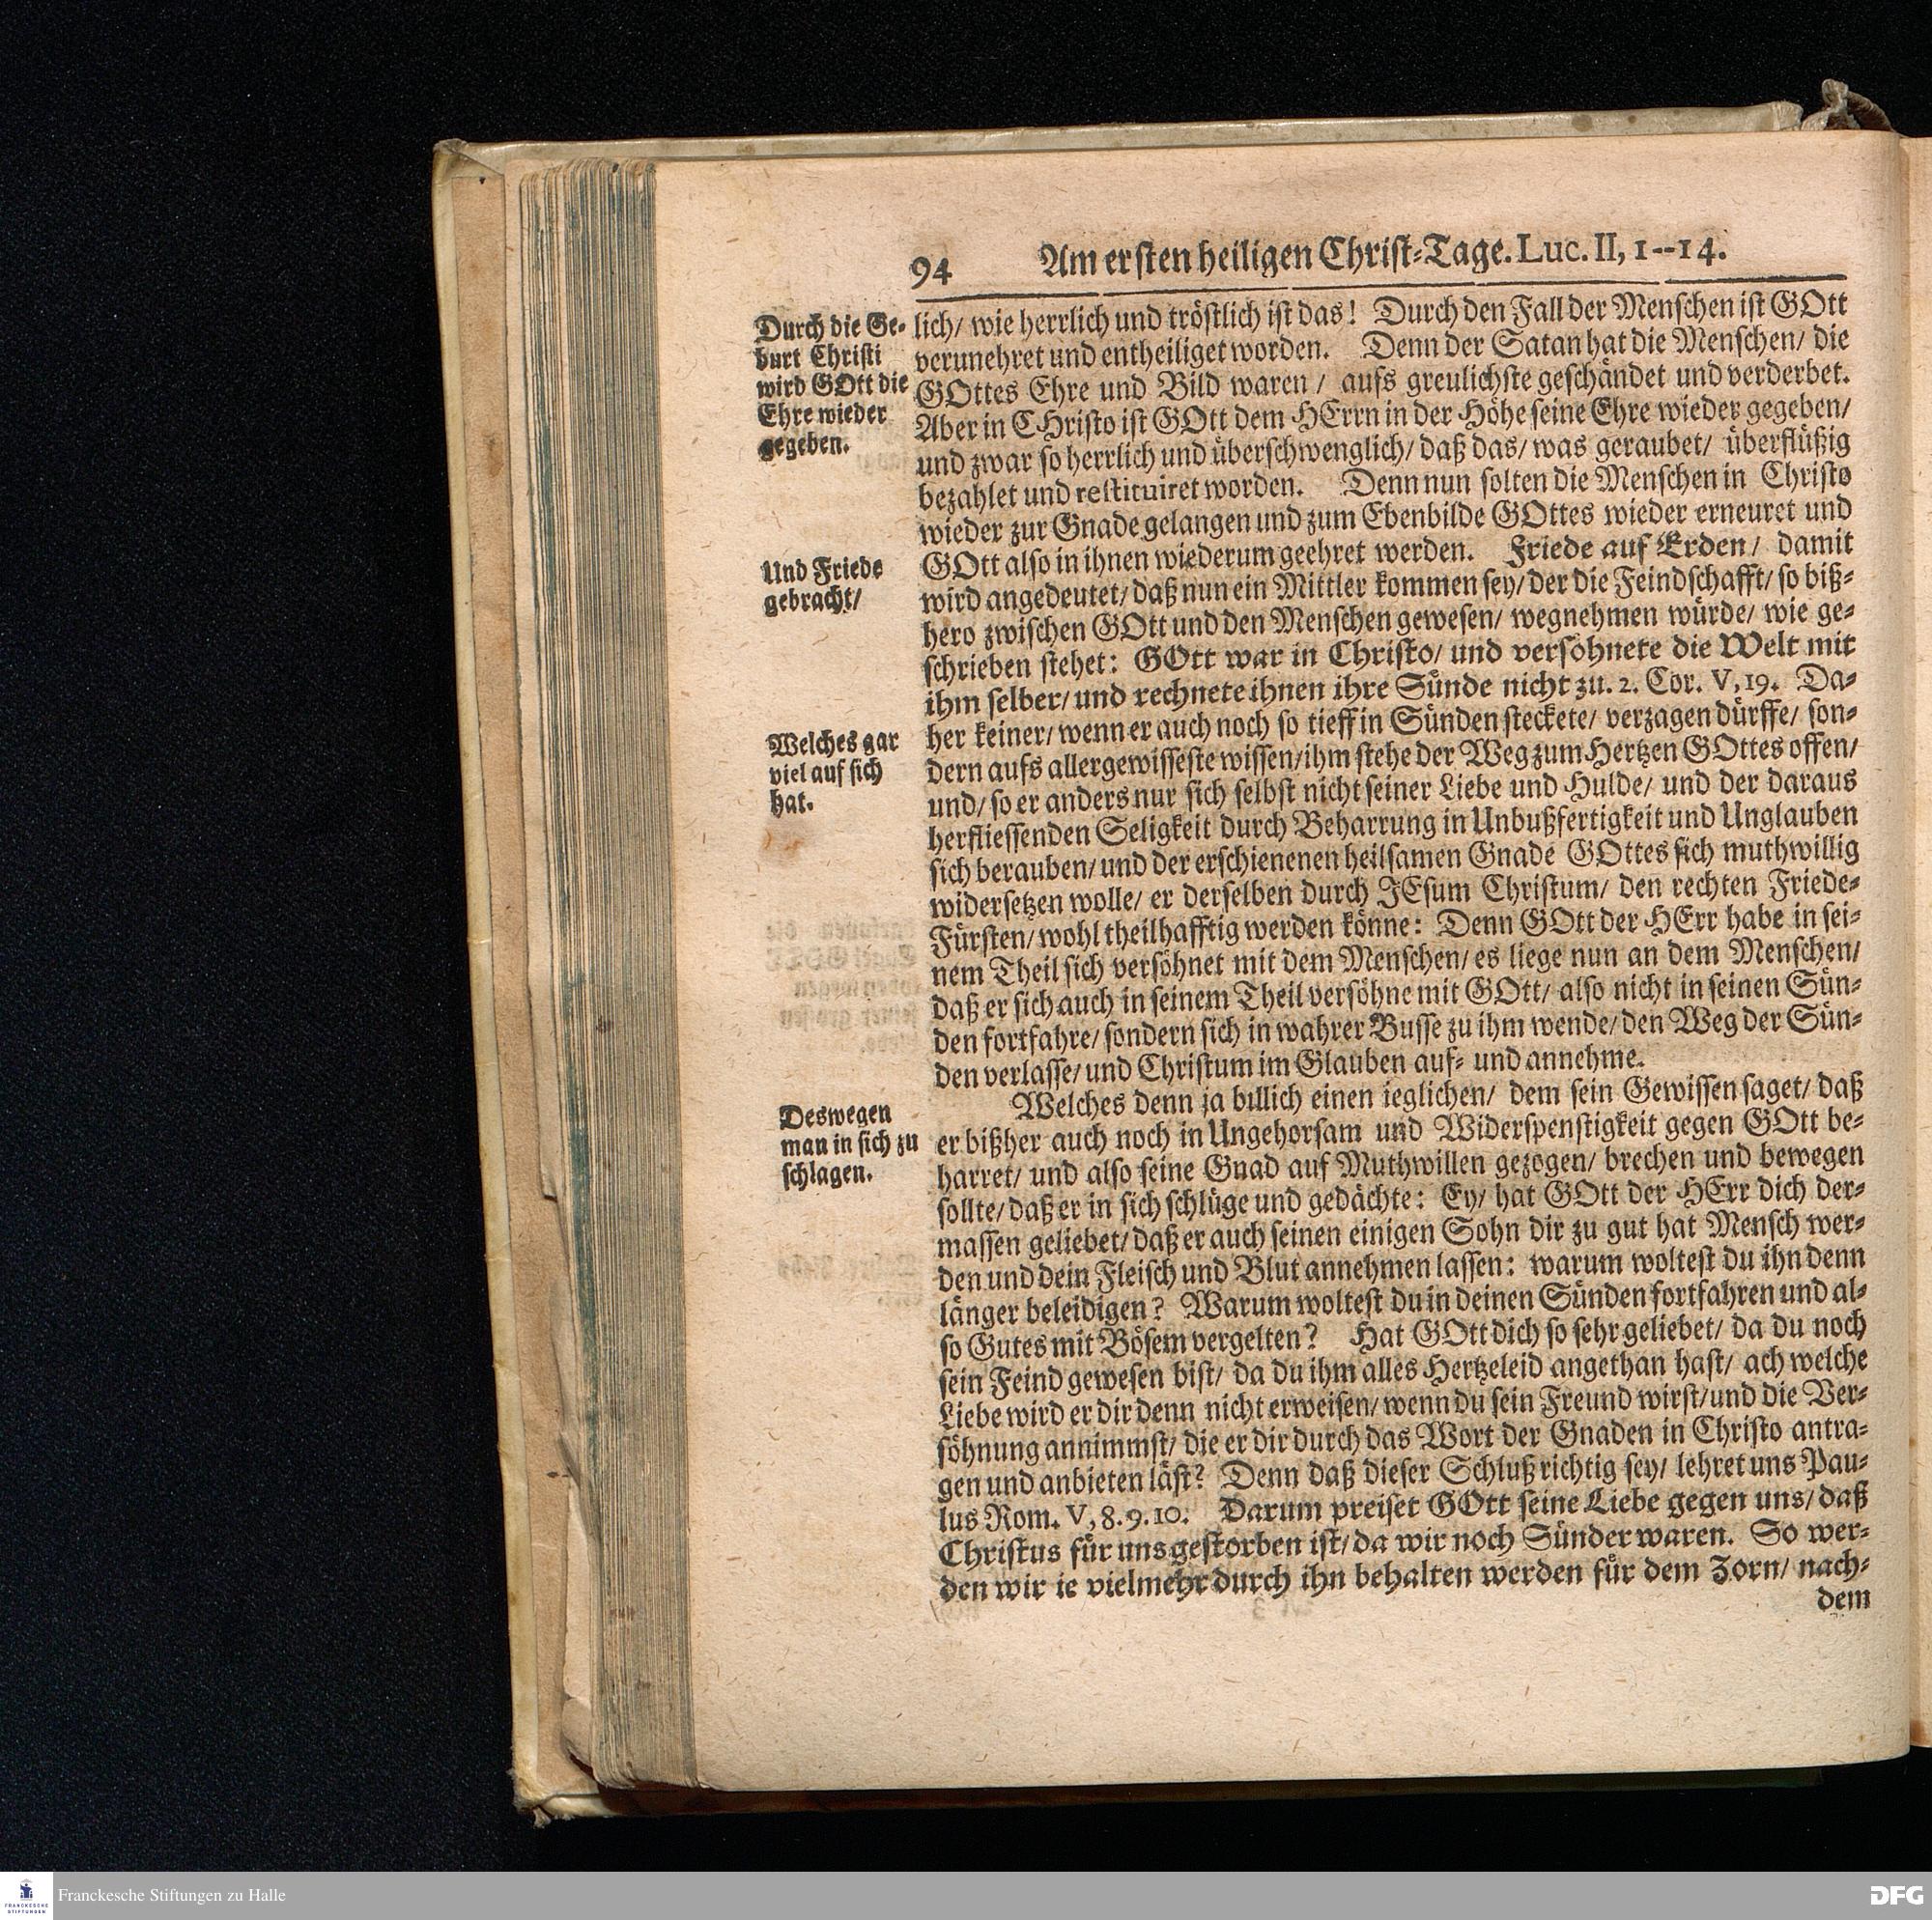 94 Am ersten heiligen Christ-Tage. Luc. II, 1--14.
Durch die Ge-
burt Christi
wird GOtt die
Ehre wieder
gegeben.
lich/ wie herrlich und tröstlich ist das! Durch den Fall der Menschen ist GOtt
verunehret und entheiliget worden. Denn der Satan hat die Menschen/ die
GOttes Ehre und Bild waren/ aufs greulichste geschändet und verderbet.
Aber in CHristo ist GOtt dem HErrn in der Höhe seine Ehre wieder gegeben/
und zwar so herrlich und überschwenglich/ daß das/ was geraubet/ überflüßig
bezahlet und restituiret worden. Denn nun solten die Menschen in Christo
wieder zur Gnade gelangen und zum Ebenbilde GOttes wieder erneuret und
Und Friede
gebracht/
GOtt also in ihnen wiederum geehret werden. Friede auf Erden/ damit
wird angedeutet/ daß nun ein Mittler kommen sey/ der die Feindschafft/ so biß-
hero zwischen GOtt und den Menschen gewesen/ wegnehmen würde/ wie ge-
schrieben stehet: GOtt war in Christo/ und versöhnete die Welt mit
ihm selber/ und rechnete ihnen ihre Sünde nicht zu. 2. Cor. V, 19. Da-
Welches gar
viel auf sich
hat.
her keiner/ wenn er auch noch so tieff in Sünden steckete/ verzagen dürffe/ son-
dern aufs allergewisseste wissen/ ihm stehe der Weg zum Hertzen GOttes offen/
und/ so er anders nur sich selbst nicht seiner Liebe und Hulde/ und der daraus
herfliessenden Seligkeit durch Beharrung in Unbußfertigkeit und Unglauben
sich berauben/ und der erschienenen heilsamen Gnade GOttes sich muthwillig
widersetzen wolle/ er derselben durch JEsum Christum/ den rechten Friede-
Fürsten/ wohl theilhafftig werden könne: Denn GOtt der HErr habe in sei-
nem Theil sich versöhnet mit dem Menschen/ es liege nun an dem Menschen/
daß er sich auch in seinem Theil versöhne mit GOtt/ also nicht in seinen Sün-
den fortfahre/ sondern sich in wahrer Busse zu ihm wende/ den Weg der Sün-
den verlasse/ und Christum im Glauben auf- und annehme.
Deswegen
man in sich zu
schlagen.
Welches denn ja billich einen ieglichen/ dem sein Gewissen saget/ daß
er bißher auch noch in Ungehorsam und Widerspenstigkeit gegen GOtt be-
harret/ und also seine Gnad auf Muthwillen gezogen/ brechen und bewegen
sollte/ daß er in sich schlüge und gedächte: Ey/ hat GOtt der HErr dich der-
massen geliebet/ daß er auch seinen einigen Sohn dir zu gut hat Mensch wer-
den und dein Fleisch und Blut annehmen lassen: warum woltest du ihn denn
länger beleidigen? Warum woltest du in deinen Sünden fortfahren und al-
so Gutes mit Bösem vergelten? Hat GOtt dich so sehr geliebet/ da du noch
sein Feind gewesen bist/ da du ihm alles Hertzeleid angethan hast/ ach welche
Liebe wird er dir denn nicht erweisen/ wenn du sein Freund wirst/ und die Ver-
söhnung annimmst/ die er dir durch das Wort der Gnaden in Christo antra-
gen und anbieten läst? Denn daß dieser Schluß richtig sey/ lehret uns Pau-
lus Rom. V, 8. 9. 10. Darum preiset GOtt seine Liebe gegen uns/ daß
Christus für uns gestorben ist/ da wir noch Sünder waren. So wer-
den wir ie vielmehr durch ihn behalten werden für dem Zorn/ nach-
dem
FRANCKESCHE
STIFTUNGEN
Franckesche Stiftungen zu Halle
DFG